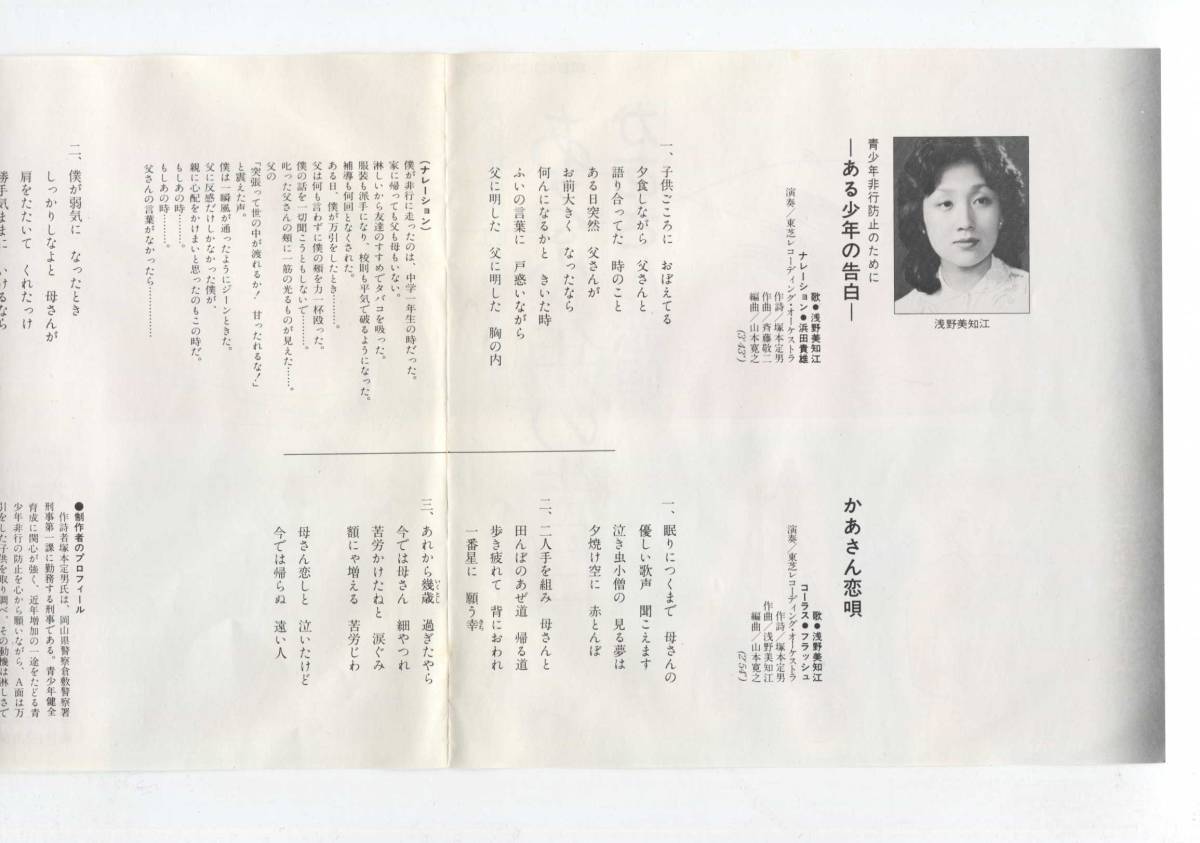 浅野美知江
青少年非行防止のために
―ある少年の告白―
歌●浅野美知江
ナレーション●浜田貴雄
作詩/塚本定男
作曲/斉藤敬二
演奏/東芝レコーディング・オーケストラ
編曲/山本寛之
(3'43")
一、子供ごころに おぼえてる
夕食しながら 父さんと
語り合ってた 時のこと
ある日突然 父さんが
お前大きく なったなら
何んになるかと きいた時
ふいの言葉に 戸惑いながら
父に明した 父に明した 胸の内
(ナレーション)
僕が非行に走ったのは、中学一年生の時だった。
家に帰っても父も母もいない。
淋しいから友達のすすめでタバコを吸った。
服装も派手になり、校則も平気で破るようになった。
補導も何回となくされた。
ある日、僕が万引をしたとき……。
父は何も言わずに僕の頬を力一杯殴った。
僕の話を一切聞こうともしないで……。
叱った父さんの頬に一筋の光るものが見えた……。
父の
「突張って世の中が渡れるか! 甘ったれるな!」
と震えた声。
僕は一瞬風が通ったようにジーンときた。
父に反感だけしかなかった僕が、
親に心配をかけまいと思ったのもこの時だ。
もしあの時……。
もしあの時……。
父さんの言葉がなかったら………
二、僕が弱気に なったとき
しっかりしなよと 母さんが
肩をたたいて くれたたっけ
勝手気ままに いけるなら
かあさん恋唄
歌●浅野美知江
コーラス●フラッシュ
作詩/塚本定男
作曲/浅野美知江
演奏/東芝レコーディング・オーケストラ
編曲/山本寛之
(2'54")
一、眠りにつくまで 母さんの
優しい歌声 聞こえます
泣き虫小僧の 見る夢は
夕焼け空に 赤とんぼ
二、二人手を組み 母さんと
田んぼのあぜ道 帰る道
歩き疲れて 背におわれ
一番星に 願う幸
三、あれから幾歳 過ぎたやら
今では母さん 細やつれ
苦労かけたねと 涙ぐみ
額にゃ増える 苦労じわ
母さん恋しと 泣いたけど
今では帰らぬ 遠い人
●制作者のプロフィール
作詩者塚本定男氏は、岡山県警察倉敷警察署
刑事第一課に勤務する刑事である。青少年健全
育成に関心が強く、近年増加の一途をたどる青
少年非行の防止を心から願いながら、A面は万
引をした子供を取り調べ、その動機は淋しさで